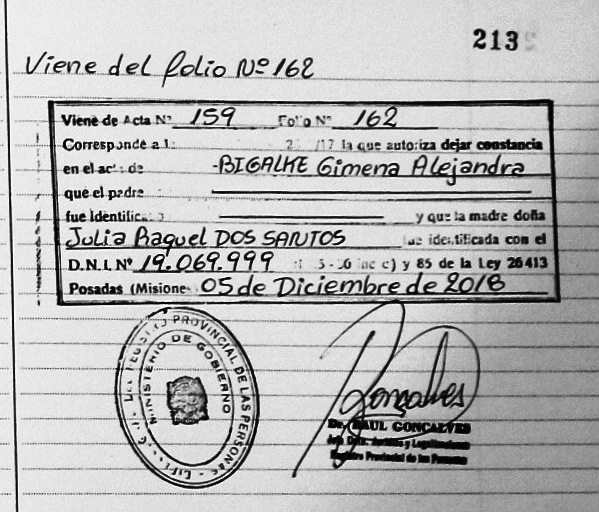 213
Viene del folio Nº 162
Viene de Acta Nº 159 Folio Nº 162
Corresponde a la que autoriza dejar constancia
en el acta de BIGALKE Gimena Alejandra
que el padre
fue identificado y que la madre doña
Julia Raquel DOS SANTOS fue identificada con el
D.N.I. Nº 19.069.999 y 85 de la Ley 26413
Posadas (Misiones 05 de Diciembre de 2018
PROVINCIAL DE LAS PERSONAS
MINISTERIO DE GOBIERNO
Gonçalves
Dr. RAUL GONCALVES
Registro Provincial de las Personas